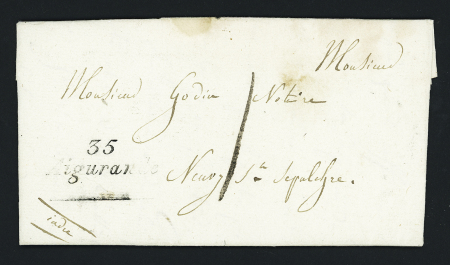 Monsieur
Monsieur Godin Notaire
35
Aigurande
Neuvy St. Sepulchre.
indre